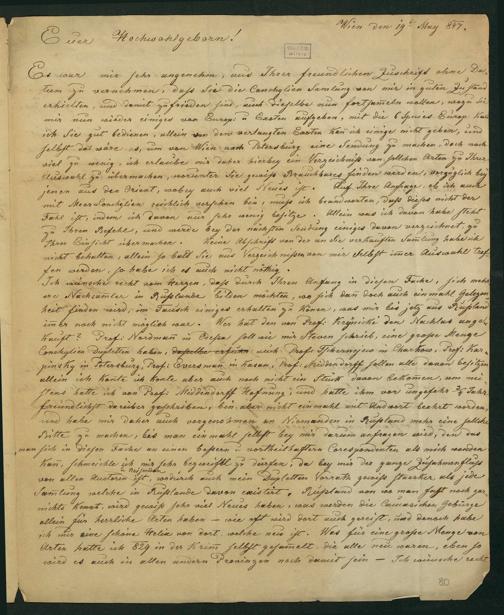 Wien den 19t May 847.
Euer Hochwohlgeborn!
Es war mir sehr angenehm, aus Ihrer freundlichen Zuschrift ohne Da-
tum zu vernehmen, daß Sie die Conchylien Samlung von mir in guten Zustand
erhielten, und damit zufrieden sind, auch dieselbe nun fortsameln wollen, wozu Sie
mir nun wieder einiges von Europ: Exoten aufgeben, mit die Species Europ: kan
ich Sie gut bedienen, allein von den verlangten Exoten kan ich einige nicht geben, und
selbst das wäre es, um von Wien nach Petersburg eine Sendung zu machen, doch noch
viel zu wenig, ich erlaube mir daher hierbey ein Verzeichniß von solchen Arten zu Ihrer
Auswahl zu übermachen, worunter Sie gewiß Brauchbares finden werden, vorzüglich bey
jenen aus den Orient, wobey auch viel Neues ist. Auf Ihre Anfrage, ob ich auch
mit Meer Conchylien reichlich versehen bin, muß ich beantworten, daß dieses nicht der
Fahl ist, indem ich davon nur sehr wenig besitze. Allein was ich davon habe steht
zu Ihren Befehl, und werde bey der nächsten Sendung einiges davon verzeichnet zu
Ihrer Einsicht übermachen. Keine Abschrift von der an Sie verkauften Samlung habe ich
nicht behalten, allein so bald Sie, aus Verzeichnissen von mir Selbst imer Auswahl tref-
fen werden, so habe ich es auch nicht nöthig.
Ich wünsche recht vom Herzen, daß durch Ihren Anfang in diesen Fache, sich meh-
re Nachsamler in Rußlande bilden möchten, wo sich dan doch auch einmahl Gelegen-
heit finden wird, im Tausch einiges erhalten zu könen, was mir bis jetz aus Rußland
imer noch nicht möglich war. Wer hat den von Prof: Krynicke den Nachlas ange-
kauft? Prof: Nordman in Odessa soll wie mir Steven schrieb, eine große Menge
Conchylien Dupleten haben, auch Prof: in Charkow, Prof: Kar-
pinsky in Petersburg, Prof: Eversman in Kasan, Prof: Middendorff sollen alle davon besitzen
allein ich konte ich konte aber auch noch nicht ein Stück davon bekomen, am mei-
sten hatte ich von Prof: Middendorff Hoffnung, und hatte ihm vor ungefehr 3/4 Jahr
freundlichst darüber geschrieben, bin aber nicht einmahl mit Andwort beehrt worden,
und habe mir daher auch vorgenomen an Niemanden in Rußland mehr eine solche
Bitte zu machen, bis man einmahl selbst bey mir darum anfragen wird, den das
man sich in diesen Fache an einen bessern u vortheilhaftern Corespondenten als mich wenden
kan, schmeichle ich mir sehr bezweiflt zu dürfen, da bey mir der ganze Zusammenfluß
von allen Autoren ist, wodurch auch mein Dupleten Vorrath gewiß stärker als jede
Samlung welche in Rußlande davon existirt. Rußland von wo man fast noch gar
nichts kennt, wird gewiß sehr viel Neues haben, was werden die Caucasischen Gebürge
allein für herrliche Arten haben — wie oft wird dort auch gereist, und dennoch habe
ich nur eine schöne Helix von dort, welche neu ist. Was für eine große Menge von
Arten hatte ich 829 in der Krim selbst gesamelt die alle neu waren, eben so
wird es auch in allen andern Provinzen noch damit sein — Ich wünsche recht
80